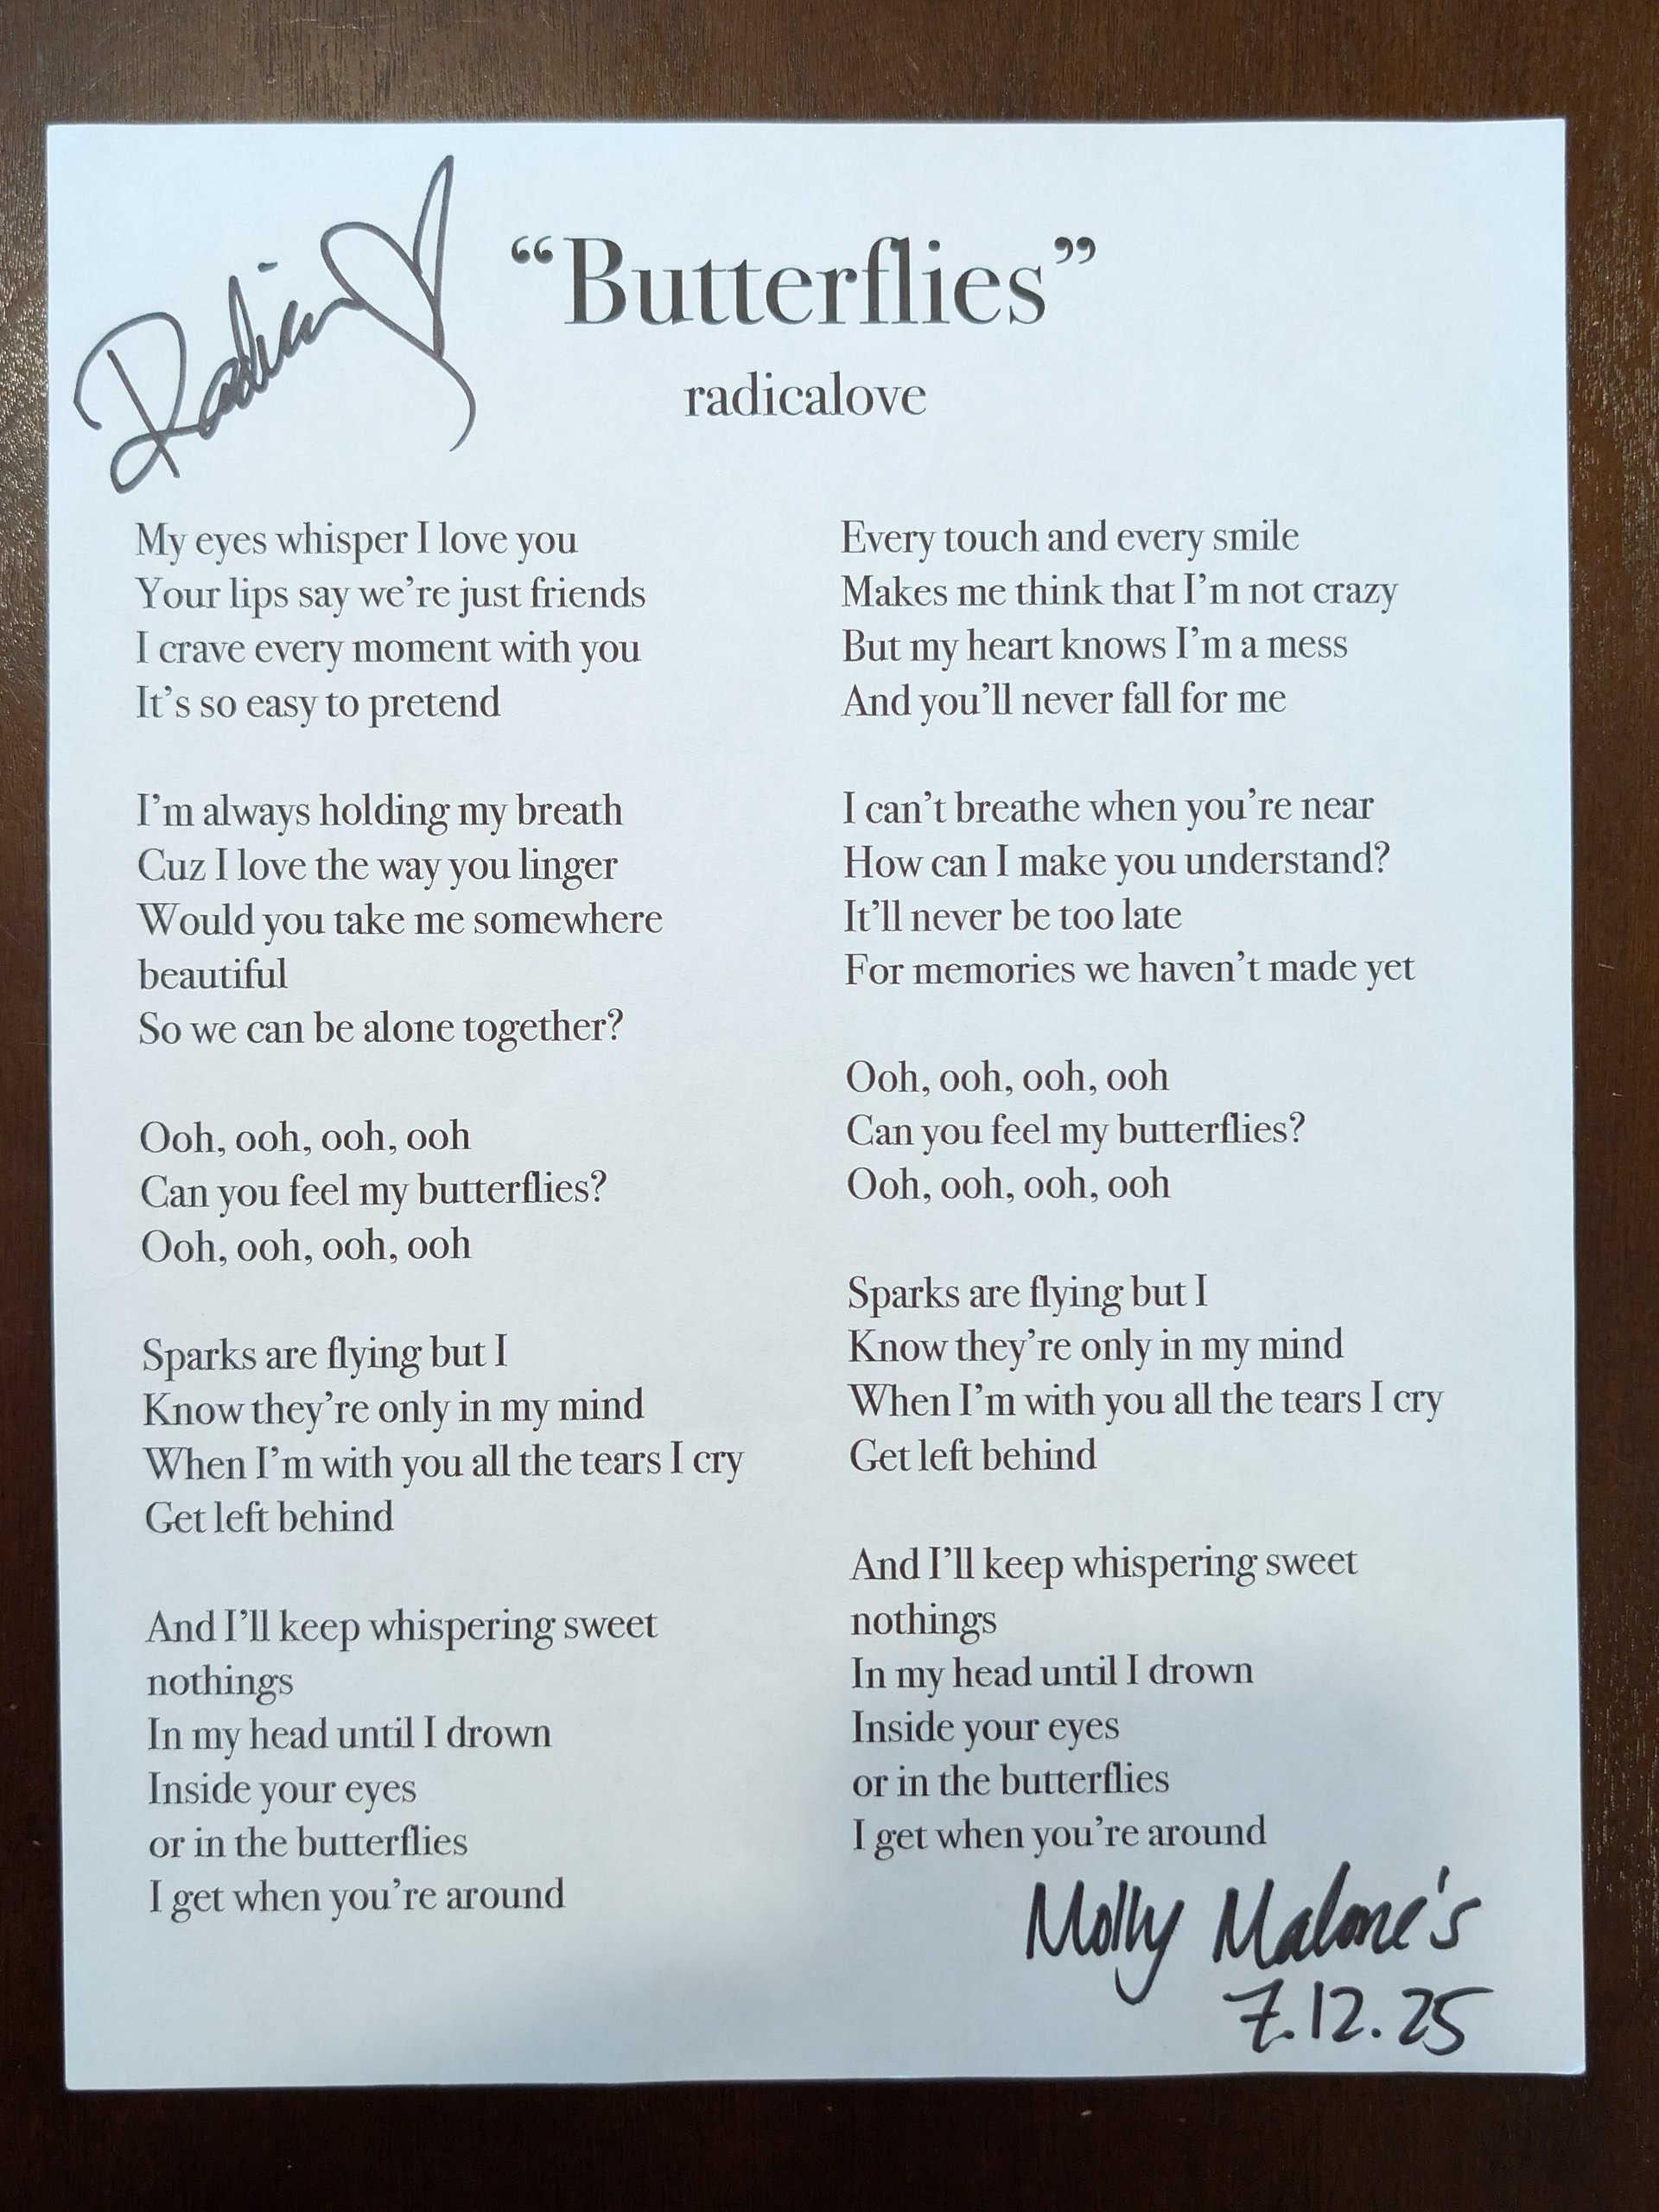 “Butterflies”
radicalove
My eyes whisper I love you
Your lips say we’re just friends
I crave every moment with you
It’s so easy to pretend
I’m always holding my breath
Cuz I love the way you linger
Would you take me somewhere
beautiful
So we can be alone together?
Ooh, ooh, ooh, ooh
Can you feel my butterflies?
Ooh, ooh, ooh, ooh
Sparks are flying but I
Know they’re only in my mind
When I’m with you all the tears I cry
Get left behind
And I’ll keep whispering sweet
nothings
In my head until I drown
Inside your eyes
or in the butterflies
I get when you’re around
Every touch and every smile
Makes me think that I’m not crazy
But my heart knows I’m a mess
And you’ll never fall for me
I can’t breathe when you’re near
How can I make you understand?
It’ll never be too late
For memories we haven’t made yet
Ooh, ooh, ooh, ooh
Can you feel my butterflies?
Ooh, ooh, ooh, ooh
Sparks are flying but I
Know they’re only in my mind
When I’m with you all the tears I cry
Get left behind
And I’ll keep whispering sweet
nothings
In my head until I drown
Inside your eyes
or in the butterflies
I get when you’re around
Molly Malone's
7.12.25